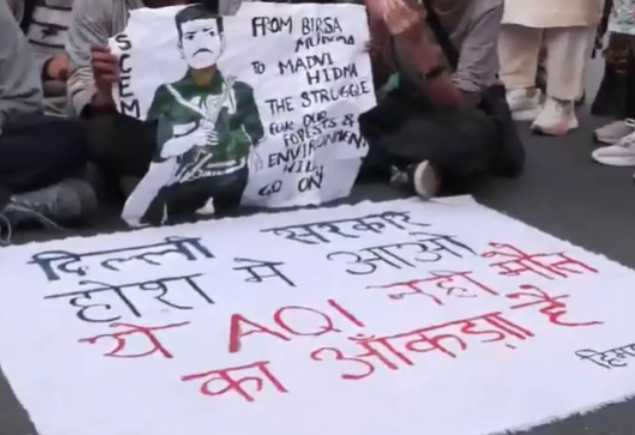 SCEM
FROM BIRSA
MUNDA
TO MADVI
HIDMA
THE STRUGGLE
FOR OUR
FORESTS &
ENVIRONMENT
WILL
GO ON
दिल्ली सरकार
होश मे आओ
ये AQI नही मौत
का आँकड़ा है